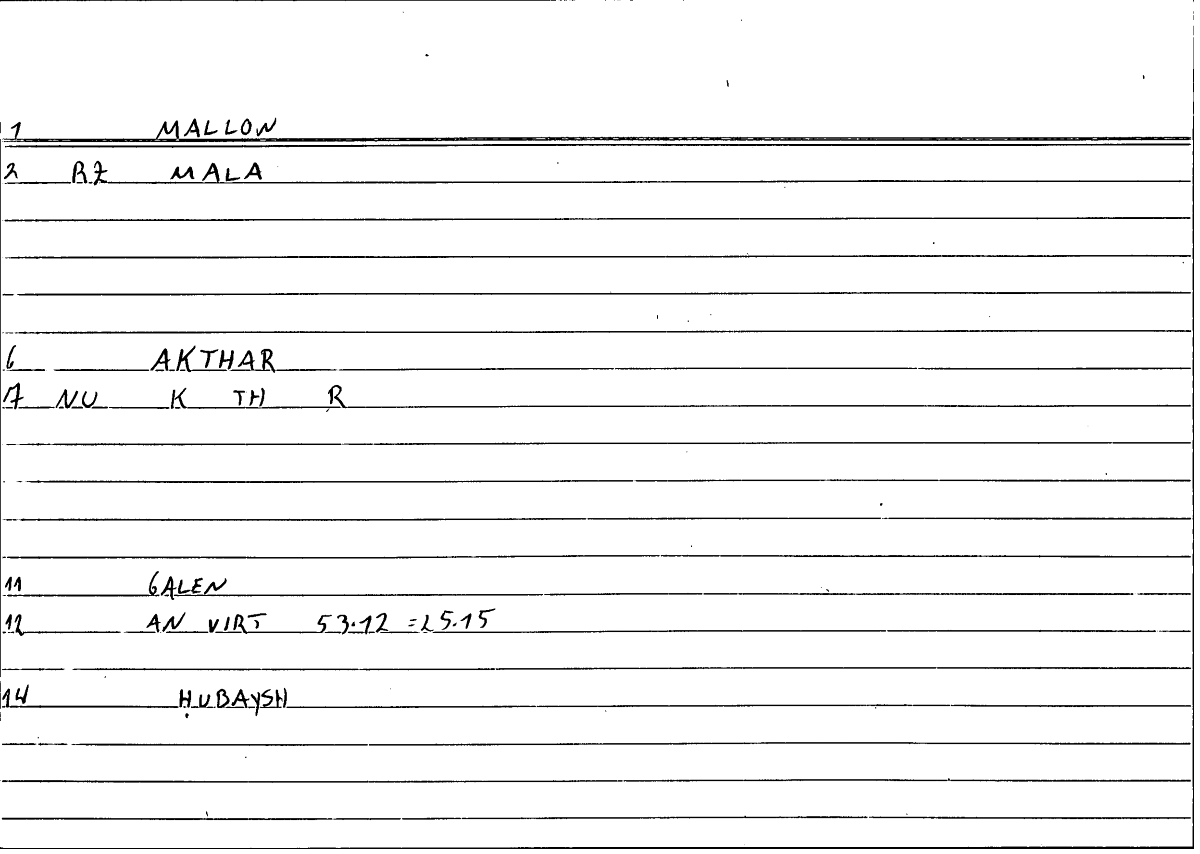 1 MALLON
2 RZ MALA
6 AKTHAR
17 NU K TH R
11 GALEN
12 AN VIRT 53.12 =25.15
14 ḤUBAYSH